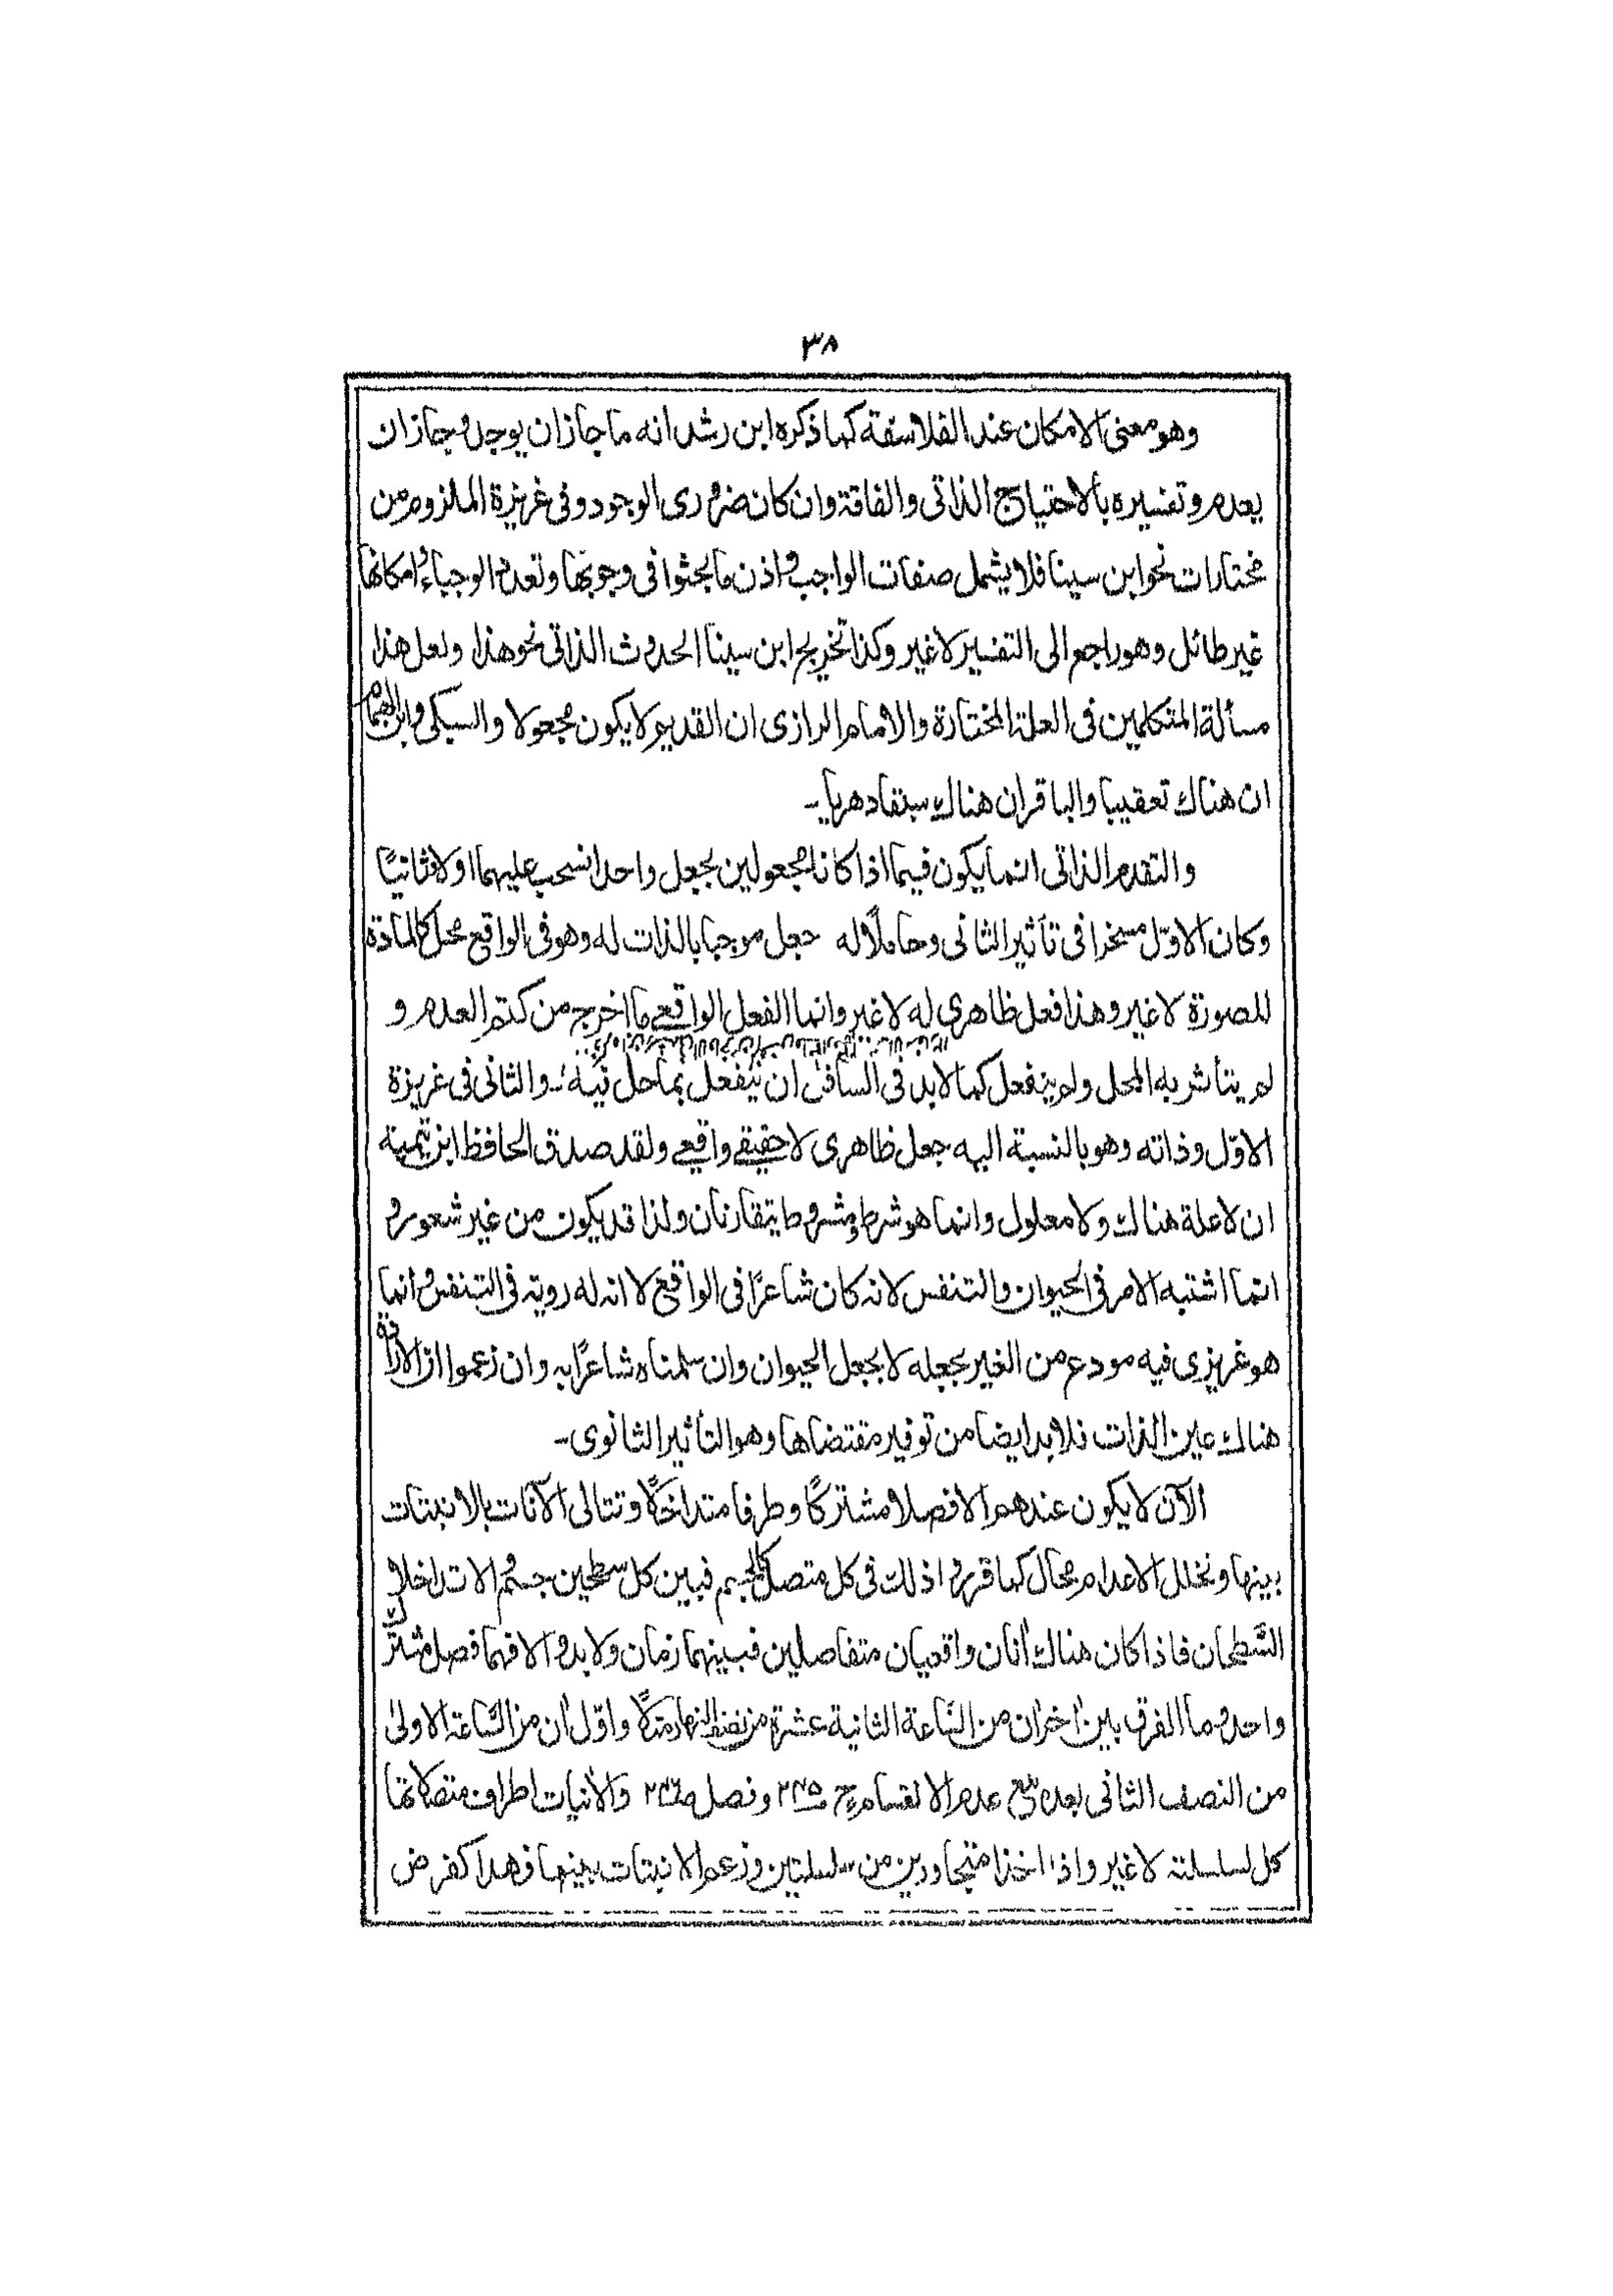 ٣٨
وهو معنى الامكان عند الفلاسفة كما ذكره ابن رشد انه ما جاز ان يوجد وجاز ان
يعدم وتفسيره بالاحتياج الذاتى والفاقة وان كان ضرورى الوجود وفى غريزة الملزوم من
مختارات نحو ابن سينا فلا يشمل صفات الواجب واذن ما بحثوا فى وجوبها وتعدد الوجباء وامكانها
غير طائل وهو راجع الى التفسير لا غير وكذا تخريج ابن سينا الحدوث الذاتى نحو هذا ولعل هذا
مسألة المتكلمين فى العلة المختارة والامام الرازى ان القديم لا يكون مجعولا والسبكى وابن الهمام
ان هناك تعقيبا والباقر ان هناك سبقا دهريا ـ
والتقدم الذاتى انما يكون فيما اذا كانا مجعولين بجعل واحد انسحب عليهما اولا وثانيًا
وكان الاوّل مسخرا فى تأثير الثانى وحاملًا له جعل موجبا بالذات له وهو فى الواقع محل كالمادة
للصورة لا غير وهذا فعل ظاهرى له لا غير وانما الفعل الواقعے ما اخرج من كتم العدم و
لم يتأثر به المحل ولم ينفعل كما لابد فى السافل ان ينفعل بما حل فيه ـ والثانى فى غريزة
الاوّل وذاته وهو بالنسبة اليه جعل ظاهرى لا حقيقے واقعے ولقد صدق الحافظ ابن تيمية
ان لا علة هناك ولا معلول وانما هو شرط ومشروط يتقارنان ولذا قد يكون من غير شعور و
انما اشتبه الامر فى الحيوان والتنفس لانه كان شاعرًا فى الواقع لا انه له روية فى التنفس وانما
هو غريزى فيه مودع من الغير بجعله لا بجعل الحيوان وان سلمناه شاعرًا به وان زعموا ان الارادة
هناك عين الذات فلابد ايضا من توفير مقتضاها وهو التأثير الثانوى ـ
الآن لا يكون عندهم الا فصلا مشتركًا وطرفا متداخلًا وتتالى الآنات بالانبتات
بينها وتخلل الاعدام محال كما قرروا ذلك فى كل متصل كالجسم فبين كل سطحين جسم والا تداخل
السَّطحان فاذا كان هناك اٰنان واقعيان متفاصلين فبينهما زمان ولابد والا فهما فصل مشترك
واحد وما الفرق بين اٰخر اٰن من السَّاعة الثانية عشرة من نصف النهار مثلًا واوّل اٰن من السَّاعة الاولىٰ
من النصف الثانى بعده مع عدم الانقسام ج ٢٣٥ وفصل ٢٣٦ والاٰنيات اطراف متصلاتها
كل لسلسلته لا غير واذا اخذا متجاورين من سلسلتين وزعم الانبتات بينهما فهذا كفرض